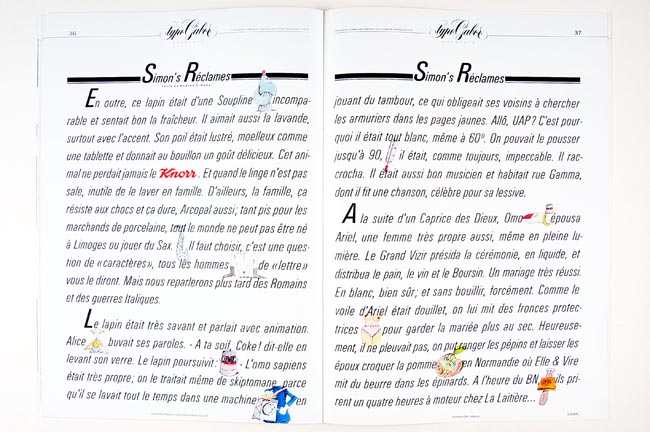 36
typoGabor
Simon's Réclames
En outre, ce lapin était d'une Soupline incompa-
rable et sentait bon la fraîcheur. Il aimait aussi la lavande,
surtout avec l'accent. Son poil était lustré, moelleux comme
une tablette et donnait au bouillon un goût délicieux. Cet ani-
mal ne perdait jamais le Knorr. Et quand le linge n'est pas
sale, inutile de le laver en famille. D'ailleurs, la famille, ca
résiste aux chocs et ca dure, Arcopal aussi; tant pis pour les
marchands de porcelaine, tout le monde ne peut pas être né
à Limoges ou jouer du Sax. Il faut choisir, c'est une ques-
tion de «caractères», tous les hommes de «lettre»
vous le diront. Mais nous reparlerons plus tard des Romains
et des guerres Italiques.
Le lapin était très savant et parlait avec animation.
Alice buvait ses paroles. - A ta soif, Coke! dit-elle en
levant son verre. Le lapin poursuivit: - L'omo sapiens
était très propre; on le traitait même de skiptomane, parce
qu'il se lavait tout le temps dans une machine en
37
typoGabor
Simon's Réclames
jouant du tambour, ce qui obligeait ses voisins à chercher
les armuriers dans les pages jaunes. Allô, UAP? C'est pour-
quoi il était tout blanc, même à 60°. On pouvait le pousser
jusqu'à 90, il était, comme toujours, impeccable. Il rac-
crocha. Il était aussi bon musicien et habitait rue Gamma,
dont il fit une chanson, célèbre pour sa lessive.
A la suite d'un Caprice des Dieux, Omo épousa
Ariel, une femme très propre aussi, même en pleine lu-
mière. Le Grand Vizir présida la cérémonie, en liquide, et
distribua le pain, le vin et le Boursin. Un mariage très réussi.
En blanc, bien sûr; et sans bouillir, forcément. Comme le
voile d'Ariel était douillet, on lui mit des fronces protec-
trices pour garder la mariée plus au sec. Heureuse-
ment, il ne pleuvait pas, on put ranger les pépins et laisser les
époux croquer la pomme en Normandie où Elle & Vire
mit du beurre dans les épinards. A l'heure du BN, ils pri-
rent un quatre heures à moteur chez La Laitière...